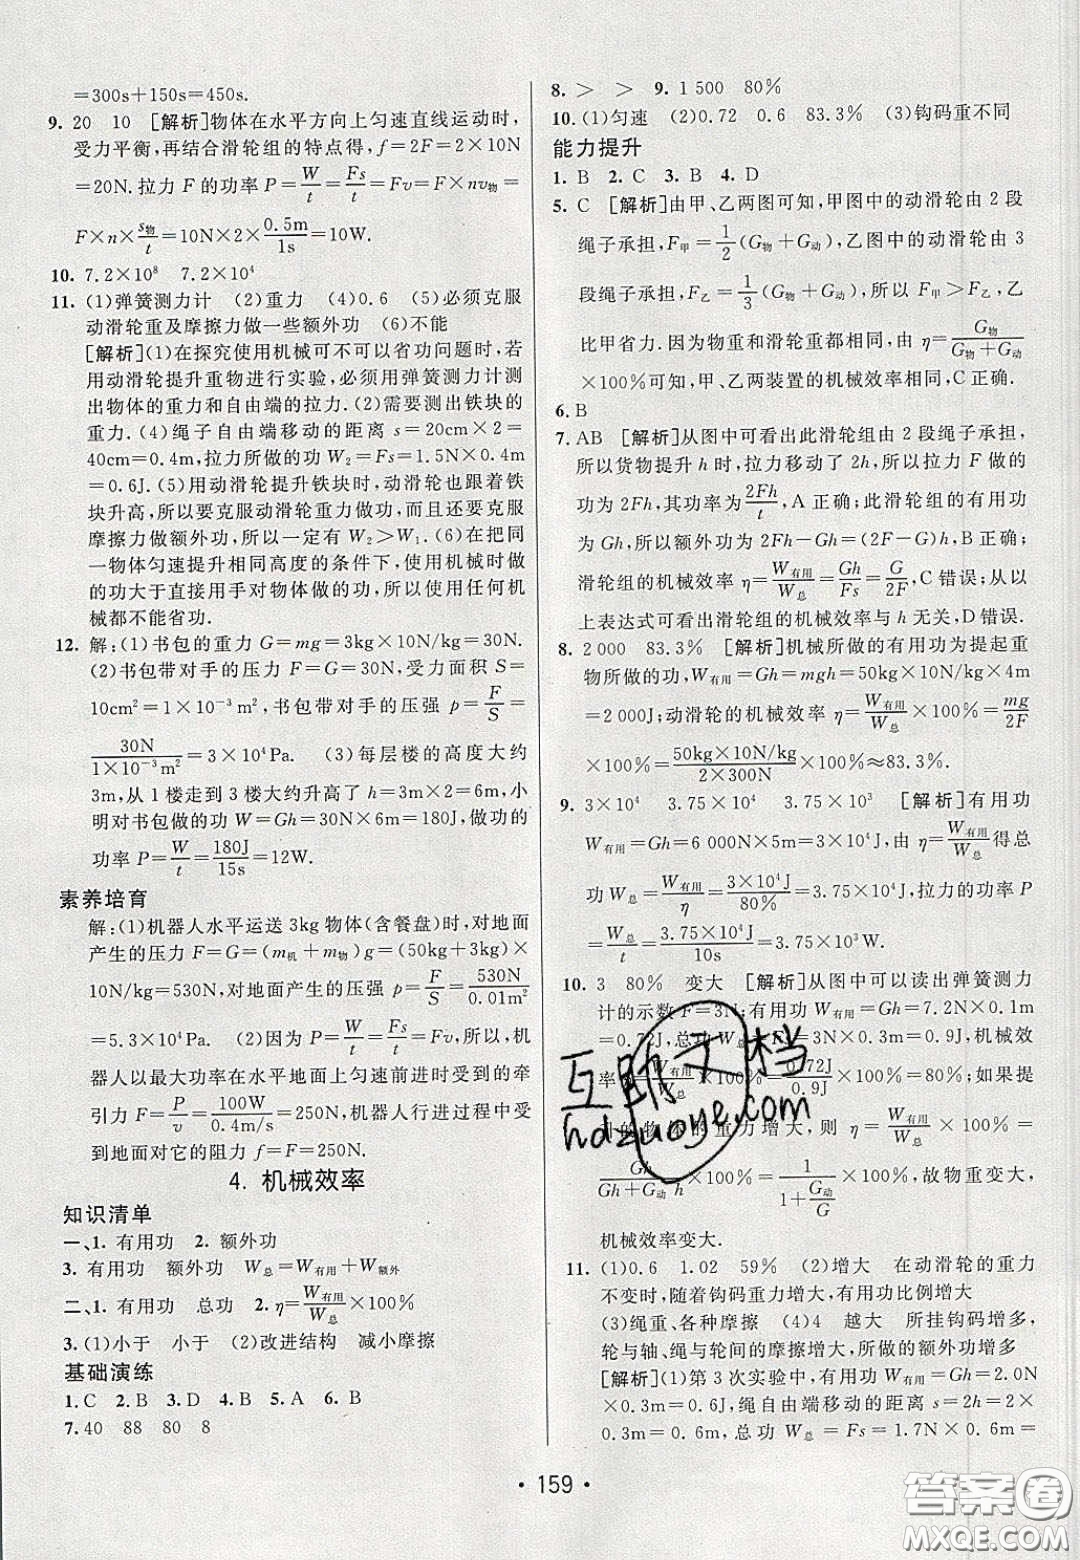 =300s+150s=450s.
9. 20 10 [解析]物体在水平方向上匀速直线运动时,
受力平衡,再结合滑轮组的特点得,f=2F=2×10N
=20N. 拉力 F 的功率 P=W/t=Fs/t=Fv=F×nv物=
F×n×s物/t=10N×2×0.5m/1s=10W.
10. 7.2×10⁸ 7.2×10⁴
11. (1)弹簧测力计 (2)重力 (4)0.6 (5)必须克服
动滑轮重及摩擦力做一些额外功 (6)不能
[解析](1)在探究使用机械可不可以省功问题时,若
用动滑轮提升重物进行实验,必须用弹簧测力计测
出物体的重力和自由端的拉力.(2)需要测出铁块的
重力.(4)绳子自由端移动的距离 s=20cm×2=
40cm=0.4m,拉力所做的功 W₂=Fs=1.5N×0.4m
=0.6J.(5)用动滑轮提升铁块时,动滑轮会随着铁
块升高,所以要克服动滑轮重力做功,而且还要克服
摩擦力做额外功.所以一定有 W₂>W₁.(6)在把同
一物体匀速提升相同高度的条件下,使用机械时做
的功大于直接用手对物体做的功,所以使用任何机
械都不能省功.
12. 解:(1)书包的重力 G=mg=3kg×10N/kg=30N.
(2)书包带对手的压力 F=G=30N,受力面积 S=
10cm²=1×10⁻³m²,书包带对手的压强 p=F/S=
30N/1×10⁻³m²=3×10⁴Pa. (3)每层楼的高度大约
3m,从1楼走到3楼大约升高了 h=3m×2=6m,小
明对书包做的功 W=Gh=30N×6m=180J,做功的
功率 P=W/t=180J/15s=12W.
素养培育
解:(1)机器人水平运送3kg物体(含餐盘)时,对地面
产生的压力 F=G=(m机+m物)g=(50kg+3kg)×
10N/kg=530N,对地面产生的压强 p=F/S=530N/0.01m²
=5.3×10⁴Pa. (2)因为 P=W/t=Fs/t=Fv,所以,机
器人以最大功率在水平地面上匀速前进时受到的牵
引力 F=P/v=100W/0.4m/s=250N,机器人行进过程中受
到地面对它的阻力 f=F=250N.
4. 机械效率
知识清单
一、1. 有用功 2. 额外功
3. 有用功 额外功 W总=W有用+W额外
二、1. 有用功 总功 2. η=W有用/W总×100%
3. (1)小于 小于 (2)改进结构 减小摩擦
基础演练
1. C 2. B 3. D 4. B 5. A 6. B
7. 40 88 80 8
8. > > 9. 1 500 80%
10. (1)匀速 (2)0.72 0.6 83.3% (3)钩码重不同
能力提升
1. B 2. C 3. B 4. D
5. C [解析]由甲、乙两图可知,甲图中的动滑轮由2段
绳子承担,F甲=1/2(G物+G动),乙图中的动滑轮由3
段绳子承担,F乙=1/3(G物+G动),所以 F甲>F乙,乙
比甲省力.因为物重和滑轮重都相同,由 η=G物/G物+G动
×100%可知,甲、乙两装置的机械效率相同,C 正确.
6. B
7. AB [解析]从图中可看出此滑轮组由2段绳子承担,
所以货物提升 h 时,拉力移动了2h,所以拉力 F 做的
功为2Fh,其功率为2Fh/t,A 正确;此滑轮组的有用功
为Gh,所以额外功为2Fh-Gh=(2F-G)h,B正确;
滑轮组的机械效率 η=W有用/W总=Gh/Fs=G/2F,C 错误;从以
上表达式可看出滑轮组的机械效率与 h 无关,D错误.
8. 2 000 83.3% [解析]机械所做的有用功为提起重
物所做的功,W有用=Gh=mgh=50kg×10N/kg×4m
=2 000J;动滑轮的机械效率 η=W有用/W总×100%=mg/2F
×100%=50kg×10N/kg/2×300N×100%≈83.3%.
9. 3×10⁴ 3.75×10⁴ 3.75×10³ [解析]有用功
W有用=Gh=6 000N×5m=3×10⁴J,由 η=W有用/W总得总
功 W总=W有用/η=3×10⁴J/80%=3.75×10⁴J,拉力的功率 P
=W总/t=3.75×10⁴J/10s=3.75×10³W.
10. 3 80% 变大 [解析]从图中可以读出弹簧测力
计的示数 F=3N;有用功 W有用=Gh=7.2N×0.1m
=0.72J,总功 W总=Fs=3N×0.3m=0.9J,机械效
率 η=W有用/W总×100%=0.72J/0.9J×100%=80%;如果提
的物体的重力增大,则 η=W有用/W总×100%=
Gh/Gh+G动h×100%=1/1+G动/G×100%,故物重变大,
机械效率变大.
11. (1)0.6 1.02 59% (2)增大 在动滑轮的重力
不变时,随着钩码重力增大,有用功比例增大
(3)绳重、各种摩擦 (4)4 越大 所挂钩码增多,
轮与轴、绳与轮间的摩擦增大,所做的额外功增多
[解析](1)第3次实验中,有用功 W有用=Gh=2.0N
×0.3m=0.6J,绳自由端移动的距离 s=2h=2×
0.3m=0.6m,总功 W总=Fs=1.7N×0.6m=
· 159 ·
互助文档
hdzuoye.com
答案圈
MXQE.COM